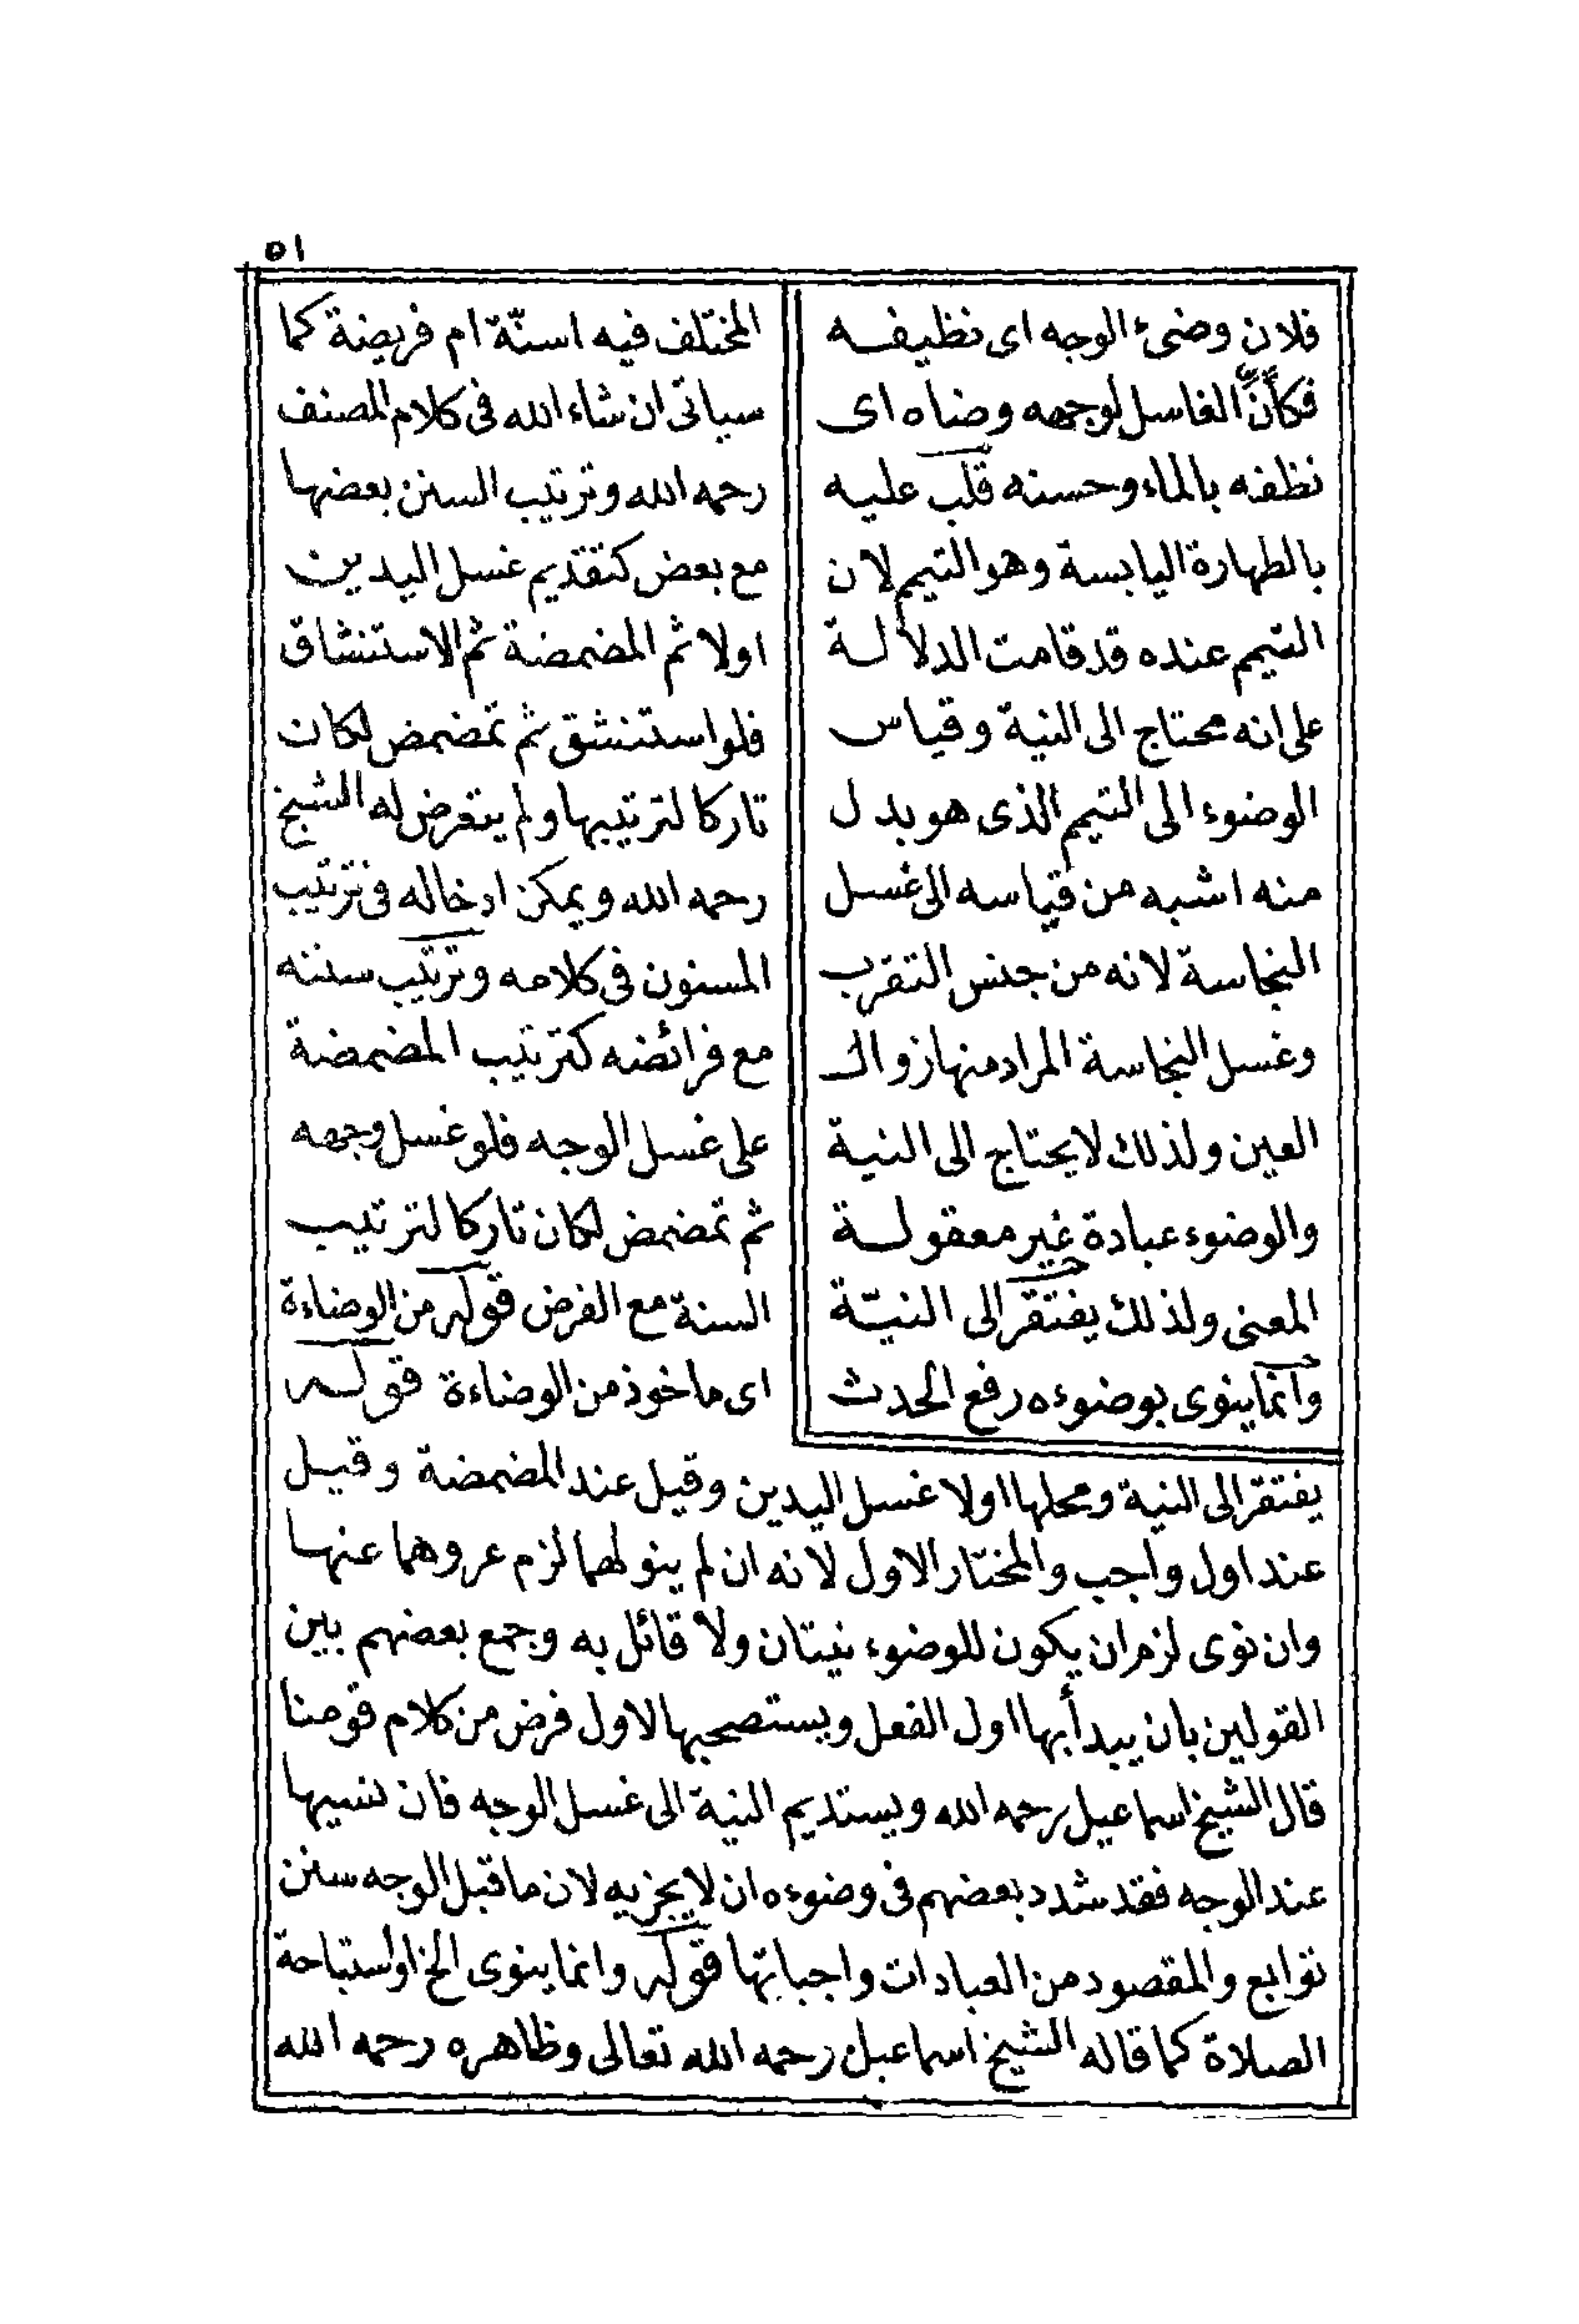 ٥١
فلان وضىء الوجه اى نظيفه
فكأنّ الغاسل لوجهه وضاه اى
نظفه بالماء وحسنه قلب عليه
بالطهارة اليابسة وهو التيمم لان
التيمم عنده قد قامت الدلالة
على انه محتاج الى النية وقياس
الوضوء الى التيمم الذى هو بدل
منه اشبه من قياسه الى غسل
النجاسة لانه من جنس التقرب
وغسل النجاسة المراد منها زوال
العين ولذلك لا يحتاج الى النية
والوضوء عبادة غير معقولة
المعنى ولذلك يفتقر الى النيّة
وانما ينوى بوضوءه رفع الحدث
المختلف فيه اسنّة ام فريضة كما
سياتى ان شاء الله فى كلام المصنف
رحمه الله وترتيب السنن بعضها
مع بعض كتقديم غسل اليدين
اولا ثم المضمضة ثم الاستنشاق
فلو استنشق ثم تمضمض لكان
تاركا لترتيبها ولم يتعرض له الشيخ
رحمه الله ويمكن ادخاله فى ترتيب
المسنون فى كلامه وترتيب سننه
مع فرائضه كترتيب المضمضة
على غسل الوجه فلو غسل وجهه
ثم تمضمض لكان تاركا لترتيب
السنة مع الفرض قوله من الوضاءة
اى ماخوذ من الوضاءة قوله
يفتقر الى النية ومحلها اولا غسل اليدين وقيل عند المضمضة وقيل
عند اول واجب والمختار الاول لانه ان لم ينو لهما لزم عروهما عنها
وان نوى لزم ان يكون للوضوء نيتان ولا قائل به وجمع بعضهم بين
القولين بان يبدأ بها اول الفعل ويستصحبها الاول فرض من كلام قومنا
قال الشيخ اسماعيل رحمه الله ويستديم النية الى غسل الوجه فان نسيها
عند الوجه فقد شدد بعضهم فى وضوءه ان لا يجزيه لان ما قبل الوجه سنن
توابع والمقصود من العبادات واجباتها قوله وانما ينوى الخ اواستباحة
الصلاة كما قاله الشيخ اسماعيل رحمه الله تعالى وظاهره رحمه الله